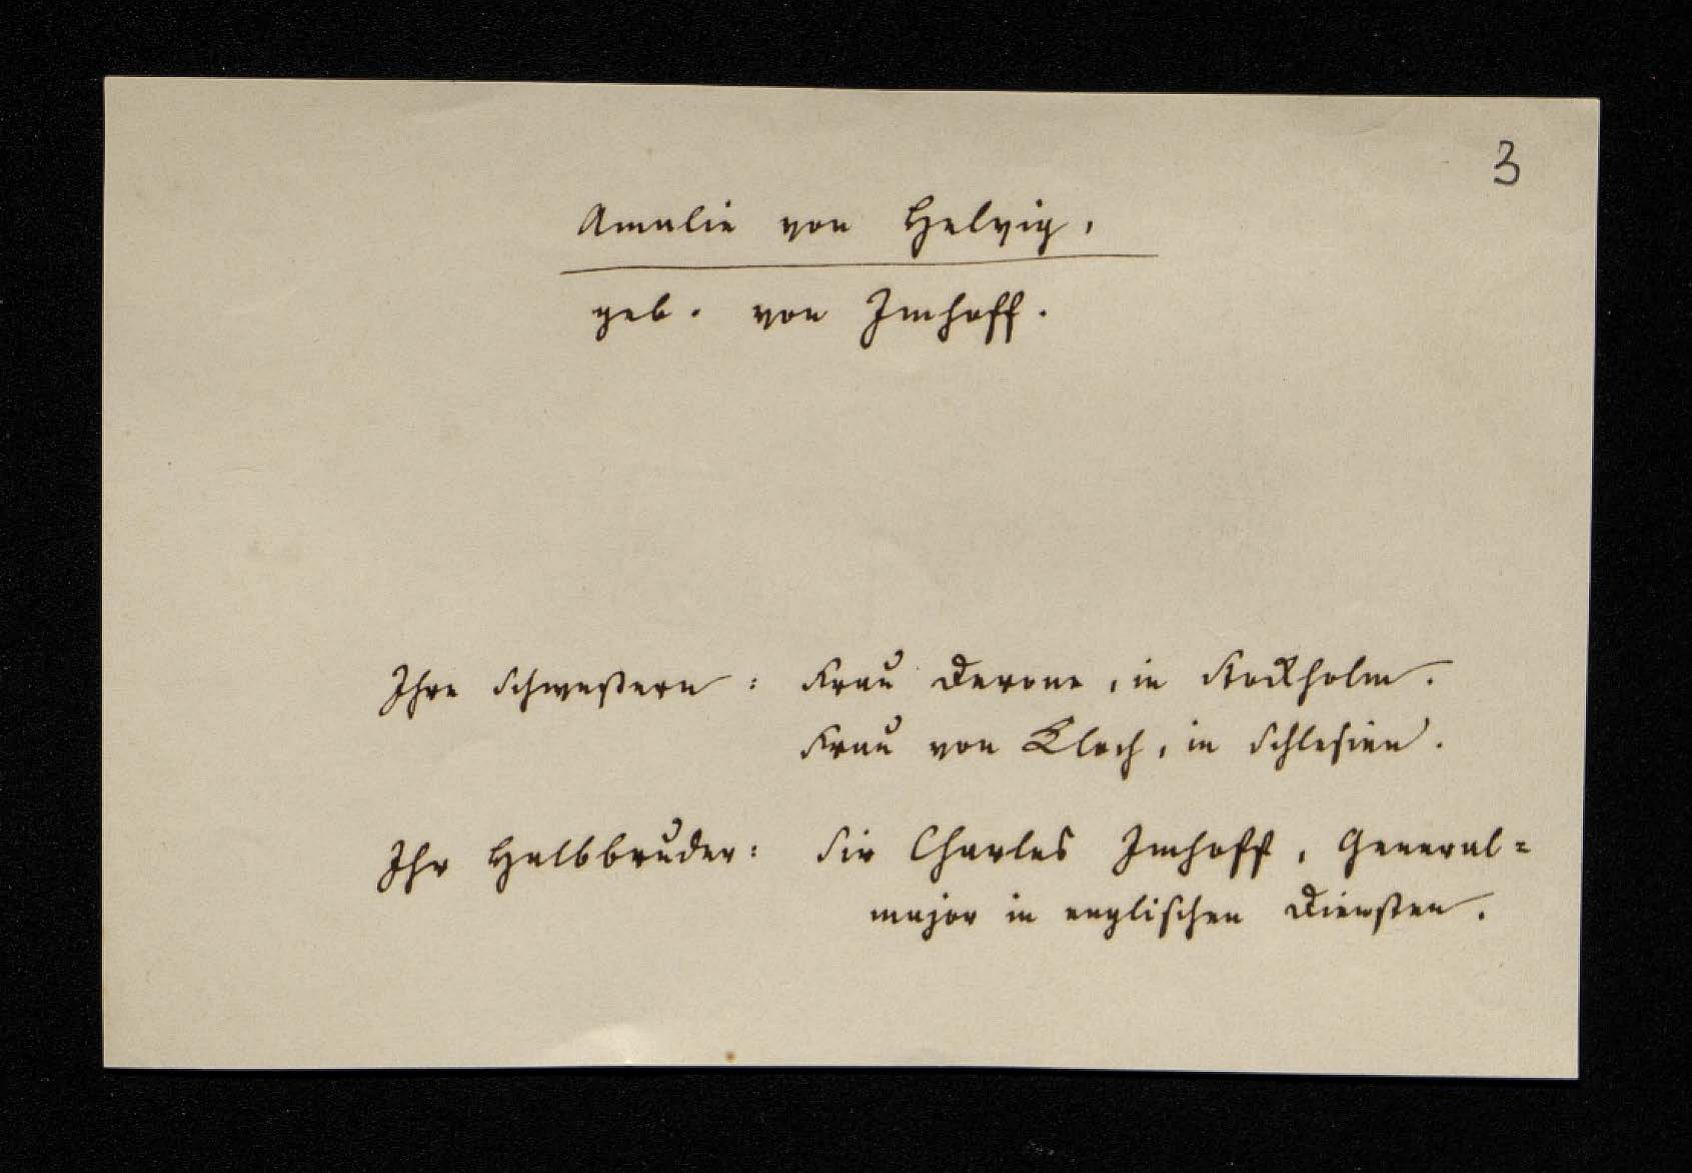 3
Amalie von Helvig,
geb. von Imhoff.
Ihre Schwestern: Frau Derone, in Stockholm.
Frau von Kloch, in Schlesien.
Ihr Halbbruder: Sir Charles Imhoff, General=
major in englischen Diensten.